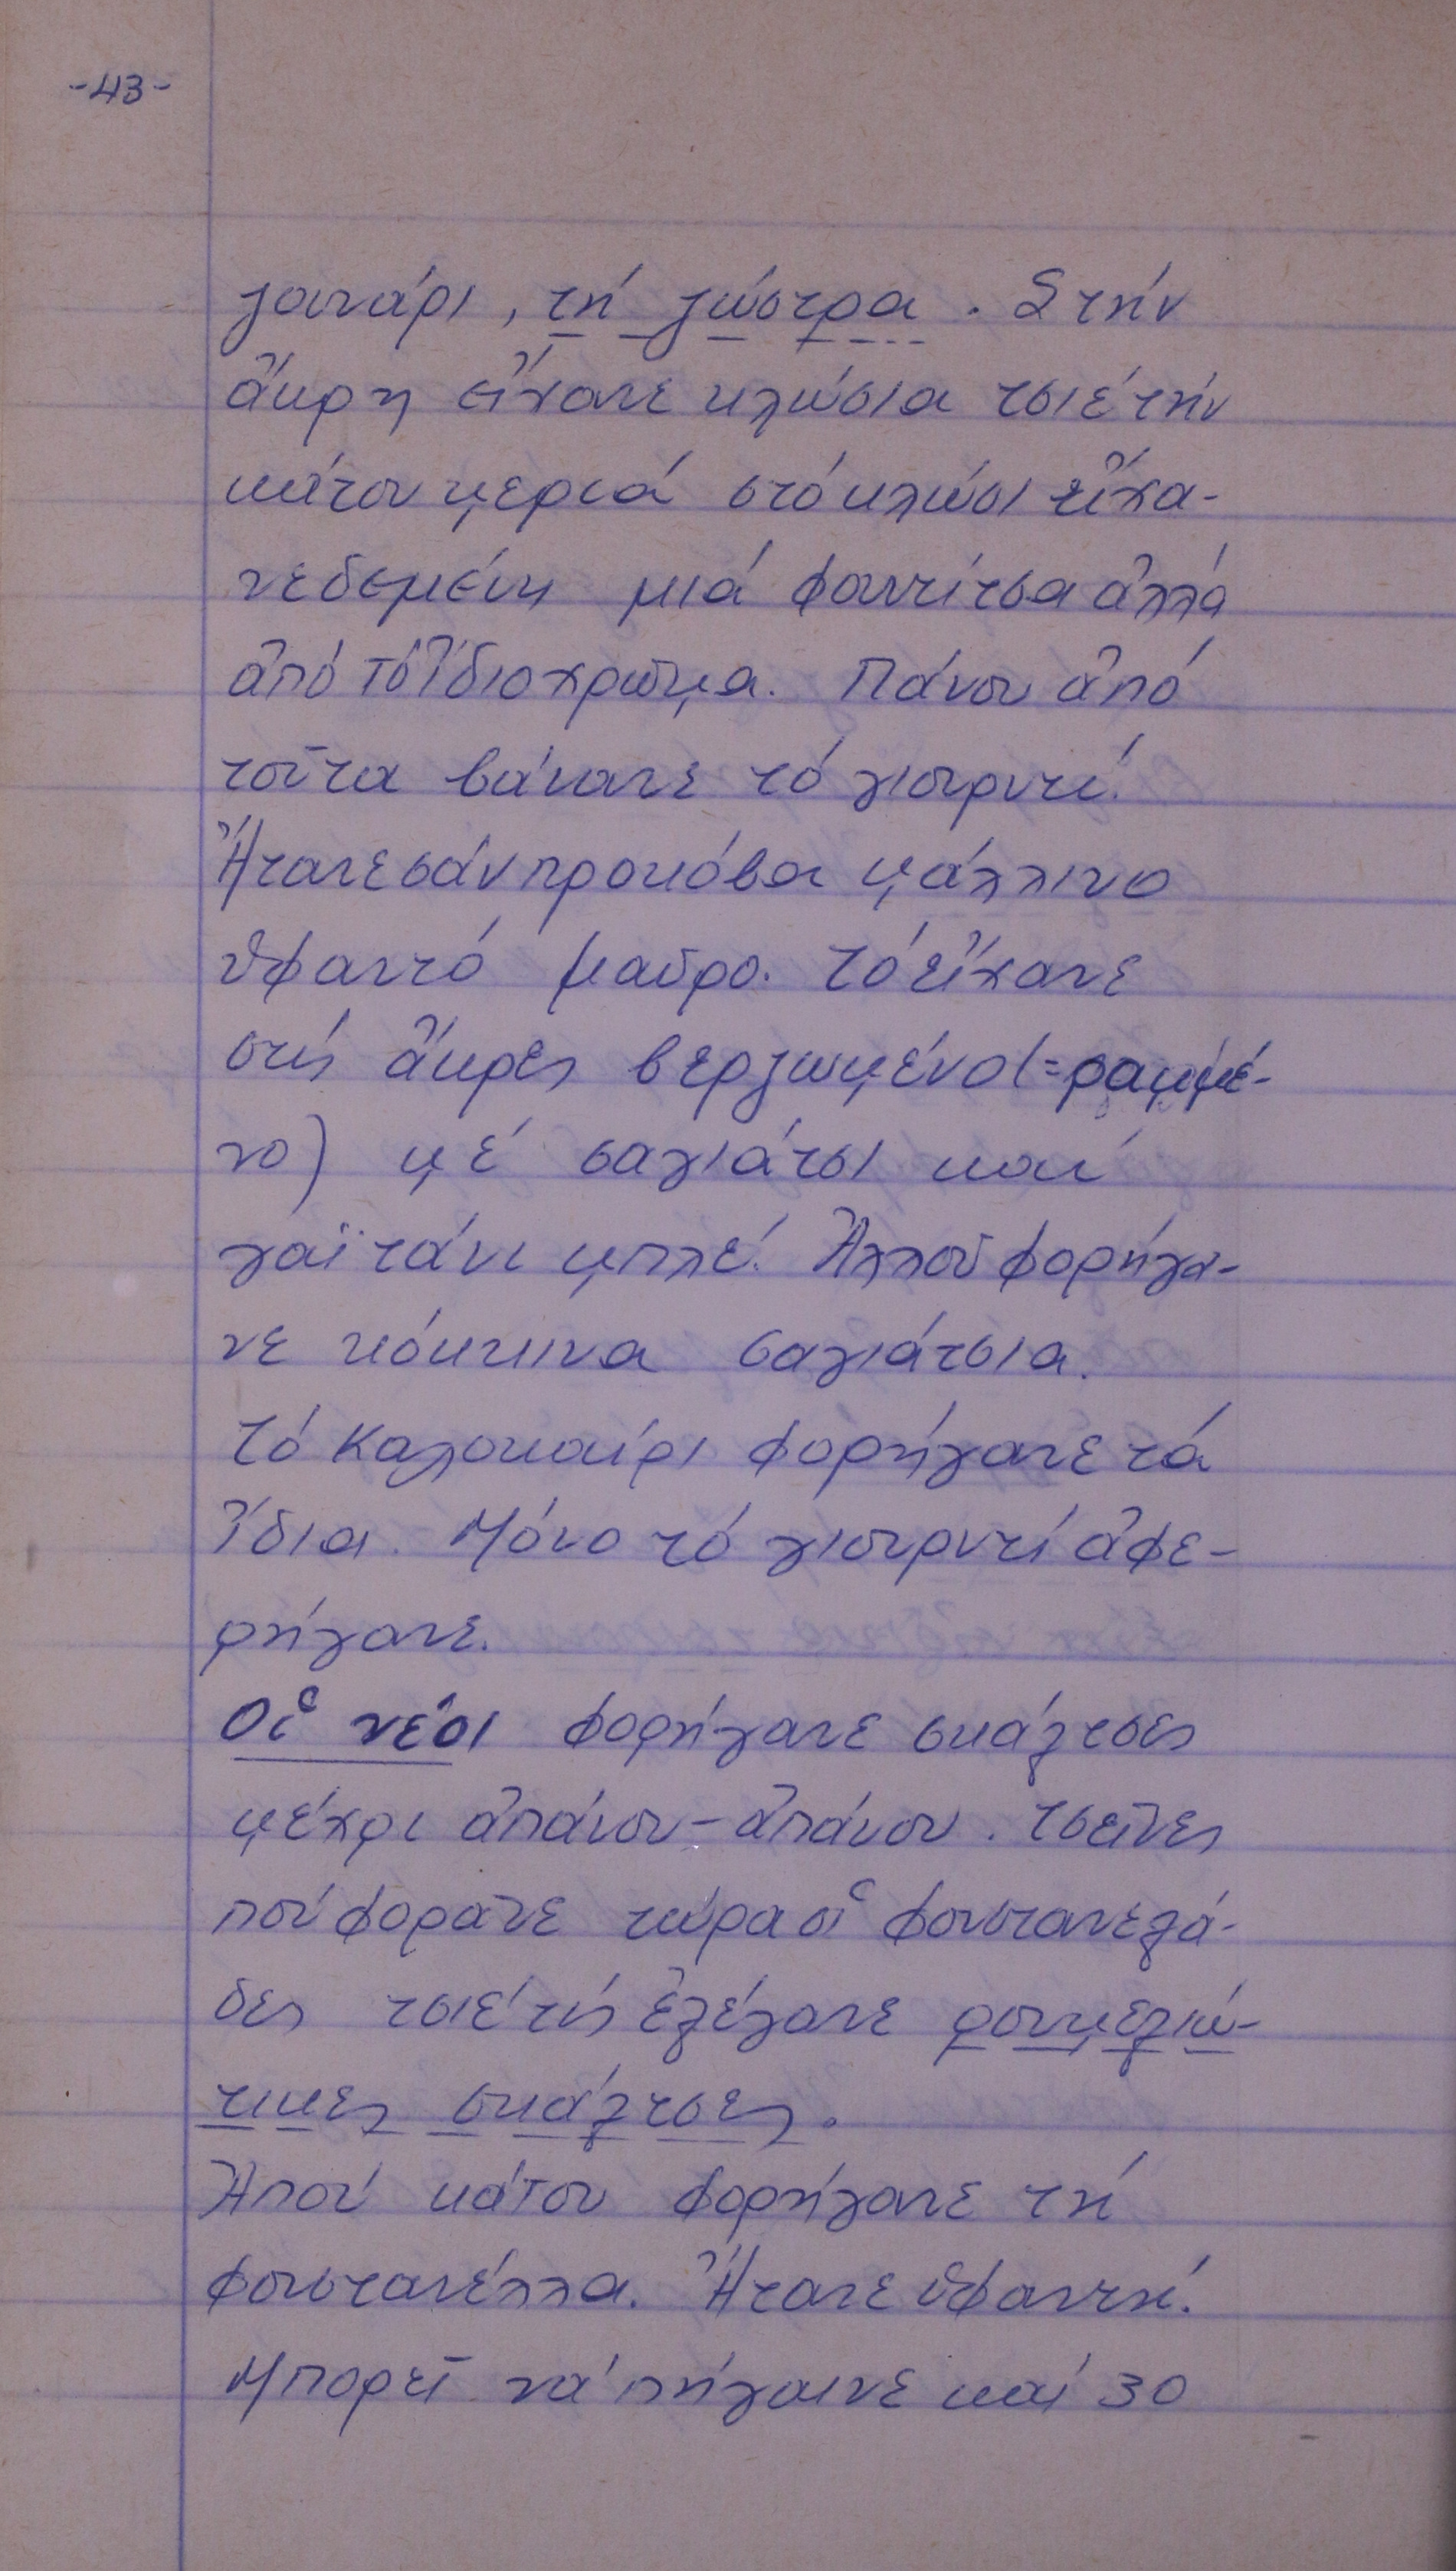 -43-
ζουνάρι, τή ζώστρα. Στήν
ἄκρη εἴχανε κλώσια τσιέ τήν
κάτου μεριά στό κλώσι εἴχα-
νε δεμένη μιά φουντίτσα ἀλλά
ἀπό τό ἴδιο χρῶμα. Πάνου ἀπό
τοῦτα βάνανε τό γιουρντί.
Ἤτανε σάν προκόβα μάλλινο
ὑφαντό μαῦρο. Τό εἴχανε
στίς ἄκρες βερζωμένο (=ραμμέ-
νο) μέ σαγιάτσι καί
γαϊτάνι μπλέ. Ἀλλοῦ φορήγα-
νε κόκκινα σαγιάτσια.
Τό καλοκαίρι φορήγανε τά
ἴδια. Μόνο τό γιουρντί ἀφε-
ρήγανε.
Οἱ νέοι φορήγανε σκάλτσες
μέχρι ἀπάνου-ἀπάνου. Τσεῖνες
πού φορᾶνε τώρα οἱ φουστανελά-
δες τσιέ τίς ἐλέγανε ρουμελιώ-
τικες σκάλτσες.
Ἀπού κάτου φορήγανε τή
φουστανέλλα. Ἤτανε ὑφαντή.
Μπορεῖ νά πήγαινε καί 30